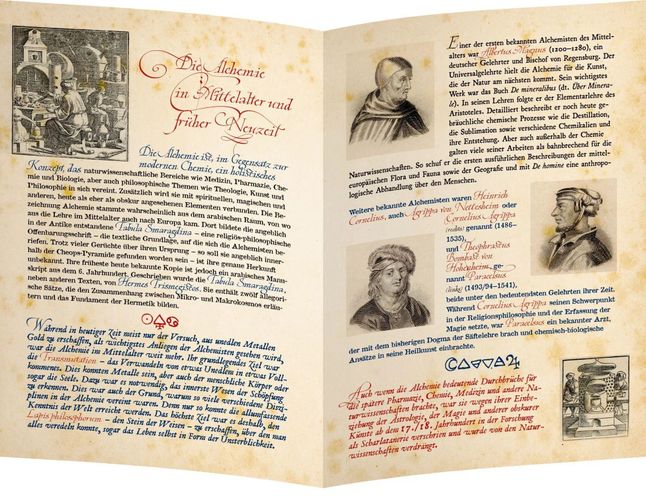 Die Alchemie
im Mittelalter und
früher Neuzeit
Die Alchemie ist, im Gegensatz zur
modernen Chemie, ein holistisches
Konzept, das naturwissenschaftliche Bereiche wie Medizin, Pharmazie, Che-
mie und Biologie, aber auch philosophische Themen wie Theologie, Kunst und
Philosophie in sich vereint. Zusätzlich wird sie mit spirituellen, magischen und
anderen, heute als eher als obskur angesehenen Elementen verbunden. Die Be-
zeichnung Alchemie stammte wahrscheinlich aus dem arabischen Raum, von wo
aus die Lehre im Mittelalter auch nach Europa kam. Dort bildete die angeblich
in der Antike entstandene Tabula Smaragdina – eine religiös-philosophische
Offenbarungsschrift – die textliche Grundlage, auf die sich die Alchemisten be-
riefen. Trotz vieler Gerüchte über ihren Ursprung – so soll sie angeblich inner-
halb der Cheops-Pyramide gefunden worden sein – ist ihre genaue Herkunft
unbekannt. Ihre früheste heute bekannte Kopie ist jedoch ein arabisches Manu-
skript aus dem 6. Jahrhundert. Geschrieben wurde die Tabula Smaragdina,
neben anderen Texten, von Hermes Trismegistos. Sie enthält zwölf allegori-
sche Sätze, die den Zusammenhang zwischen Mikro- und Makrokosmos erläu-
tern und das Fundament der Hermetik bilden.
Während in heutiger Zeit meist nur der Versuch, aus unedlen Metallen
Gold zu erschaffen, als wichtigstes Anliegen der Alchemisten gesehen wird,
war die Alchemie im Mittelalter weit mehr. Ihr grundlegendes Ziel war
die Transmutation – das Verwandeln von etwas Unedlem in etwas Voll-
kommenes. Dies konnten Metalle sein, aber auch der menschliche Körper oder
sogar die Seele. Dazu war es notwendig, das innerste Wesen der Schöpfung
zu erkennen. Dies war auch der Grund, warum so viele verschiedene Diszi-
plinen in der Alchemie vereint waren. Denn nur so konnte die allumfassende
Kenntnis der Welt erreicht werden. Das höchste Ziel war es deshalb, den
Lapis philosophorum – den Stein der Weisen – zu erschaffen, über den man
alles veredeln konnte, sogar das Leben selbst in Form der Unsterblichkeit.
Einer der ersten bekannten Alchemisten des Mittel-
alters war Albertus Magnus (1200–1280), ein
deutscher Gelehrter und Bischof von Regensburg. Der
Universalgelehrte hielt die Alchemie für die Kunst,
die der Natur am nächsten kommt. Sein wichtigstes
Werk war das Buch De mineralibus (dt. Über Minera-
le). In seinen Lehren folgte er der Elementarlehre des
Aristoteles. Detailliert beschreibt er noch heute ge-
bräuchliche chemische Prozesse wie die Destillation,
die Sublimation sowie verschiedene Chemikalien und
ihre Entstehung. Aber auch außerhalb der Chemie
galten viele seiner Arbeiten als bahnbrechend für die
Naturwissenschaften. So schuf er die ersten ausführlichen Beschreibungen der mittel-
europäischen Flora und Fauna sowie der Geografie und mit De homine eine anthropo-
logische Abhandlung über den Menschen.
Weitere bekannte Alchemisten waren Heinrich
Cornelius, auch Agrippa von Nettesheim oder
Cornelius Agrippa
(rechts) genannt (1486–
1535),
und Theophrastus
Bombast von
Hohenheim, ge-
nannt Paracelsus
(links) (1493/94–1541),
beide unter den bedeutendsten Gelehrten ihrer Zeit.
Während Cornelius Agrippa seinen Schwerpunkt
in der Religionsphilosophie und der Erfassung der
Magie setzte, war Paracelsus ein bekannter Arzt,
der mit dem bisherigen Dogma der Säftelehre brach und chemisch-biologische
Ansätze in seine Heilkunst einbrachte.
Auch wenn die Alchemie bedeutende Durchbrüche für
die spätere Pharmazie, Chemie, Medizin und andere Na-
turwissenschaften brachte, war sie wegen ihrer Einbe-
ziehung der Astrologie, der Magie und anderer obskurer
Künste ab dem 17./18. Jahrhundert in der Forschung
als Scharlatanerie verschrien und wurde von den Natur-
wissenschaften verdrängt.